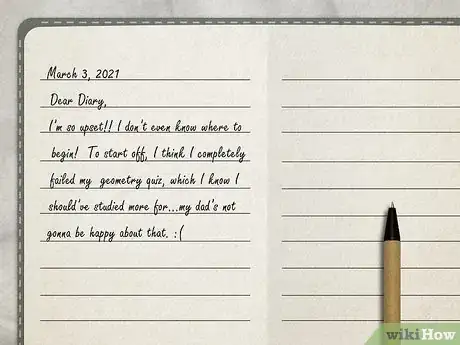 March 3, 2021
Dear Diary,
I'm so upset!! I don't even know where to
begin! To start off, I think I completely
failed my geometry quiz, which I know I
should've studied more for...my dad's not
gonna be happy about that. :(
wikiHow